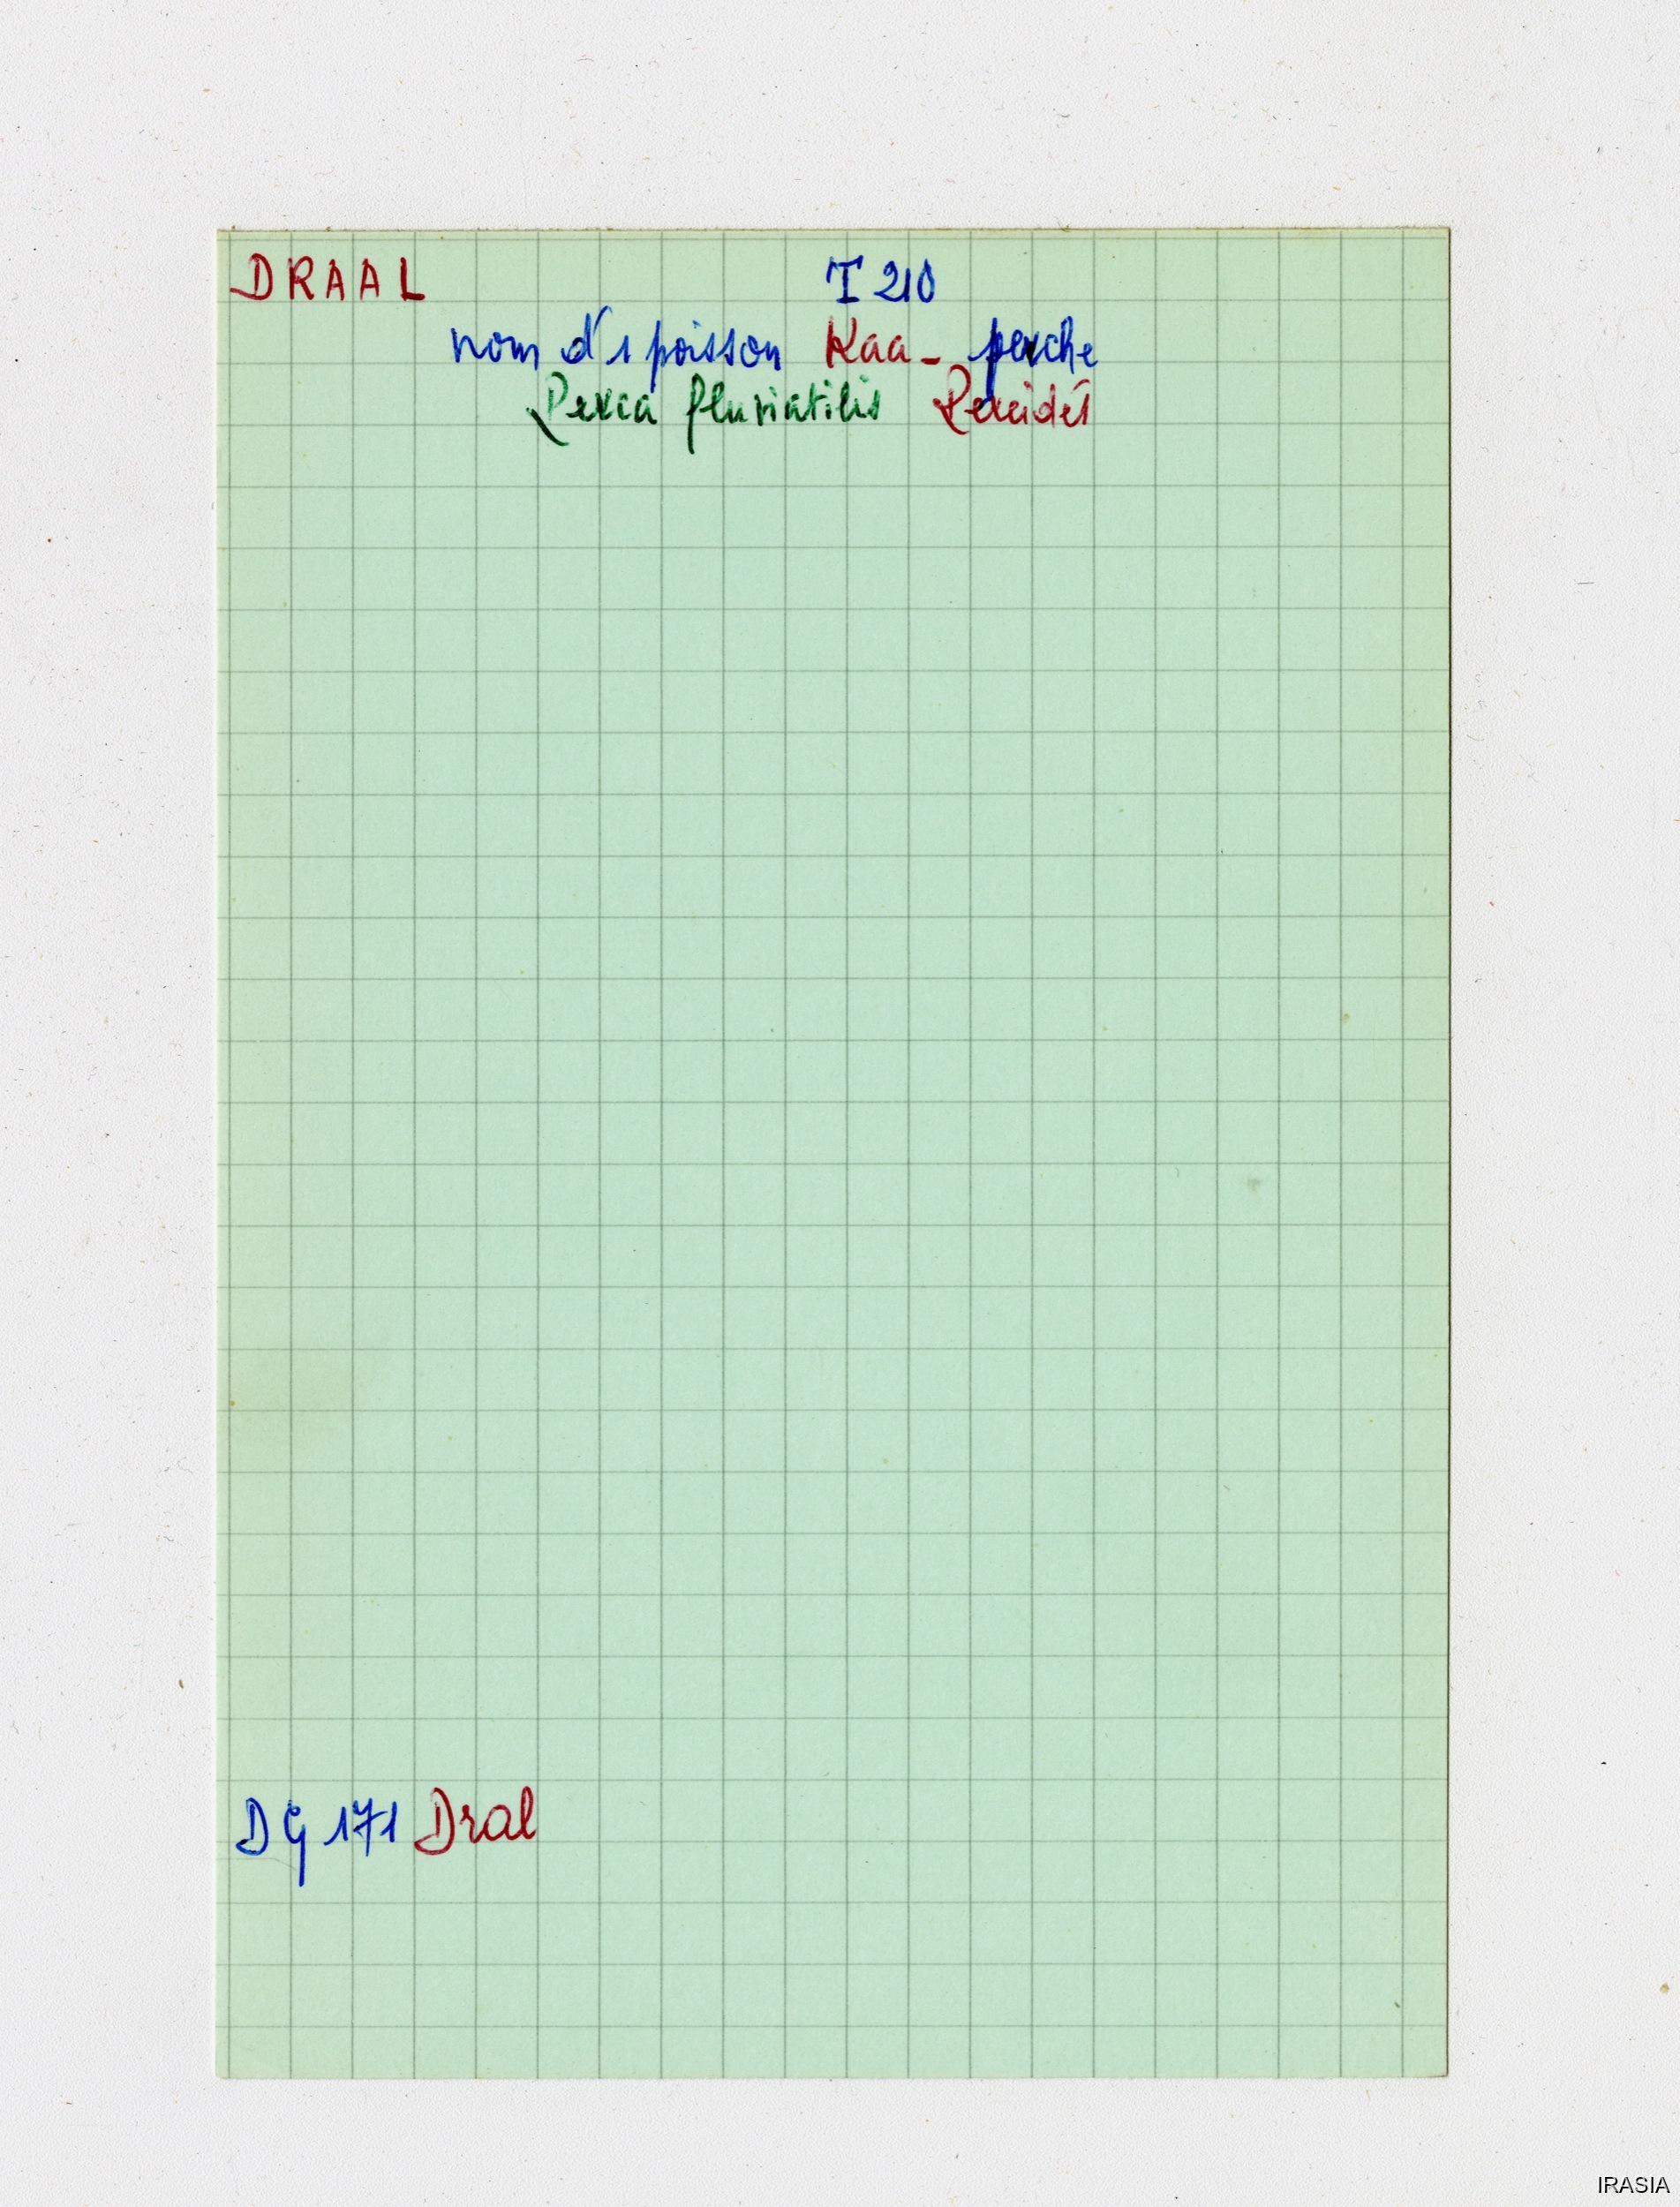 DRAAL T 210
nom d'1 poisson Kaa - perche
Perca fluviatilis Percidés
DG 171 Dral
IRASIA